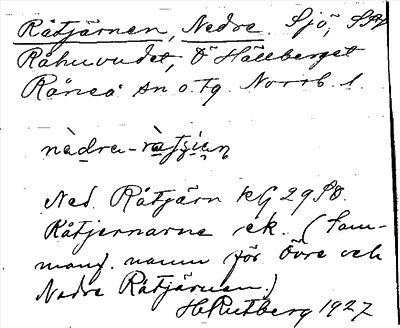 Råtjärnen, Nedre. Sjö, S
Råhuvudet, Ö Hällberget
Råneå sn o. tg. Norrb. l.
nèdra-ràtsien
Ned. Råtjärn kG 29
Råtjernarne ek. (Sam-
manf. namn för Övre och
Nedre Råtjärnen.)
H Rutberg 1927